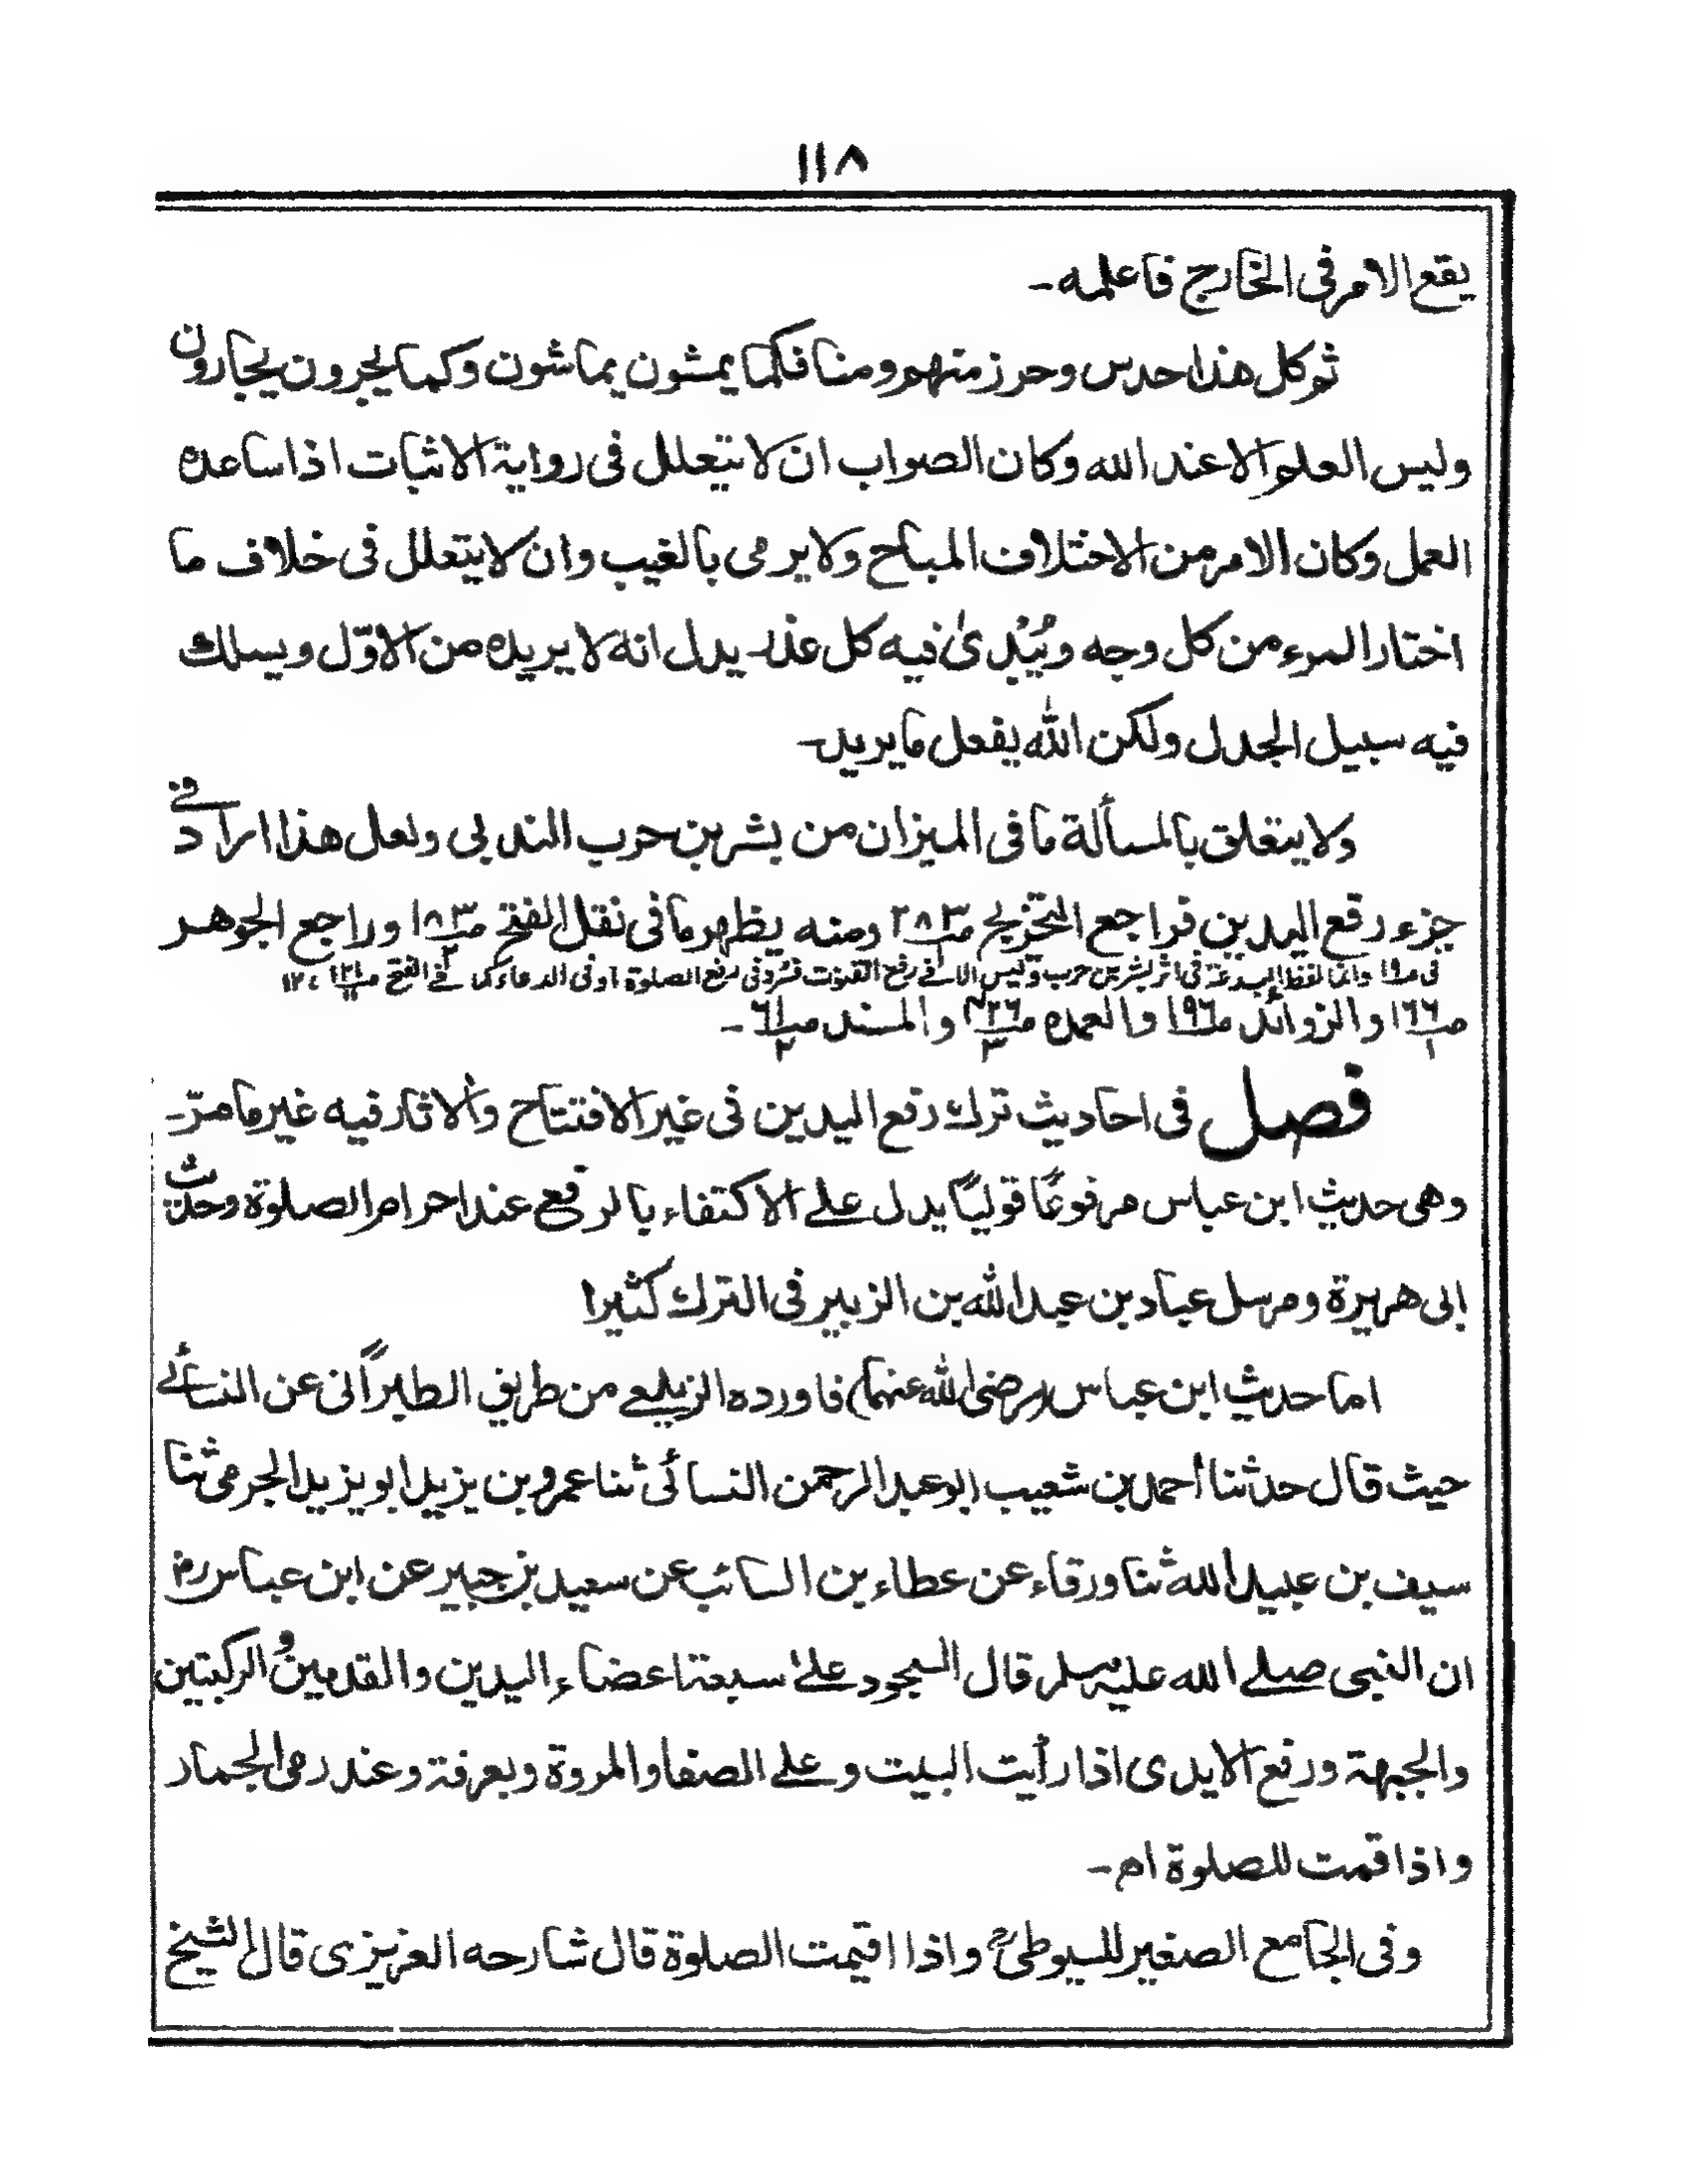 ١١٨
يقع الامر فى الخارج فاعلمه۔
ثم كل هذا حدس وحرز منهم ومنا فكما يمشون يماشون وكما يجرون يجارون
وليس العلم الا عند الله وكان الصواب ان لا يتعلل فى رواية الاثبات اذا ساعده
العمل وكان الامر من الاختلاف المباح ولا يرمى بالغيب وان لا يتعلل فى خلاف ما
اختار المرء من كل وجه ويُبْدىٰ فيه كل عذر يدل انه لا يريده من الاوّل ويسلك
فيه سبيل الجدل ولكن الله يفعل ما يريد۔
ولا يتعلق بالمسألة ما فى الميزان من بشر بن حرب الندبى ولعل هذا اراد فى
جزء رفع اليدين فراجع التخريج ص٢٨٣ ومنه يظهر ما فى نقل الفتح ص١٨٣/٢ وراجع الجوهر
فى ص١٩ وانما لفظ البدعة فى اثر بشر بن حرب وليس الا فى رفع القنوت فسره فى رفع الصلوة او فى الدعاء كما فى الفتح ص١٢١/١١ ١٢؎
ص١٦٦/١ والزوائد ص١٩٦ والعمده ص٣٦/٣ والمسند ص٦١/٢۔
فصل فى احاديث ترك رفع اليدين فى غير الافتتاح والاثار فيه غير ما مرّ۔
وهى حديث ابن عباس مرفوعًا قوليًا يدل على الاكتفاء بالرفع عند احرام الصلوة وحديث
ابى هريرة ومرسل عباد بن عبد الله بن الزبير فى الترك كثيرا
اما حديث ابن عباس (رضى الله عنهما) فاورده الزيلعى من طريق الطبرانى عن النسائى
حيث قال حدثنا أحمد بن شعيب ابو عبد الرحمن النسائى ثنا عمرو بن يزيد ابو يزيد الجرمى ثنا
سيف بن عبيد الله ثنا ورقاء عن عطاء بن السائب عن سعيد بن جبير عن ابن عباس رض
ان النبى صلى الله عليه وسلم قال السجود على سبعة اعضاء اليدين والقدمين والركبتين
والجبهة ورفع الايدى اذا رأيت البيت وعلى الصفا والمروة وبعرفة وعند رمى الجمار
واذا قمت للصلوة اه۔
وفى الجامع الصغير للسيوطىؒ واذا اقيمت الصلوة قال شارحه العزيزى قال الشيخ